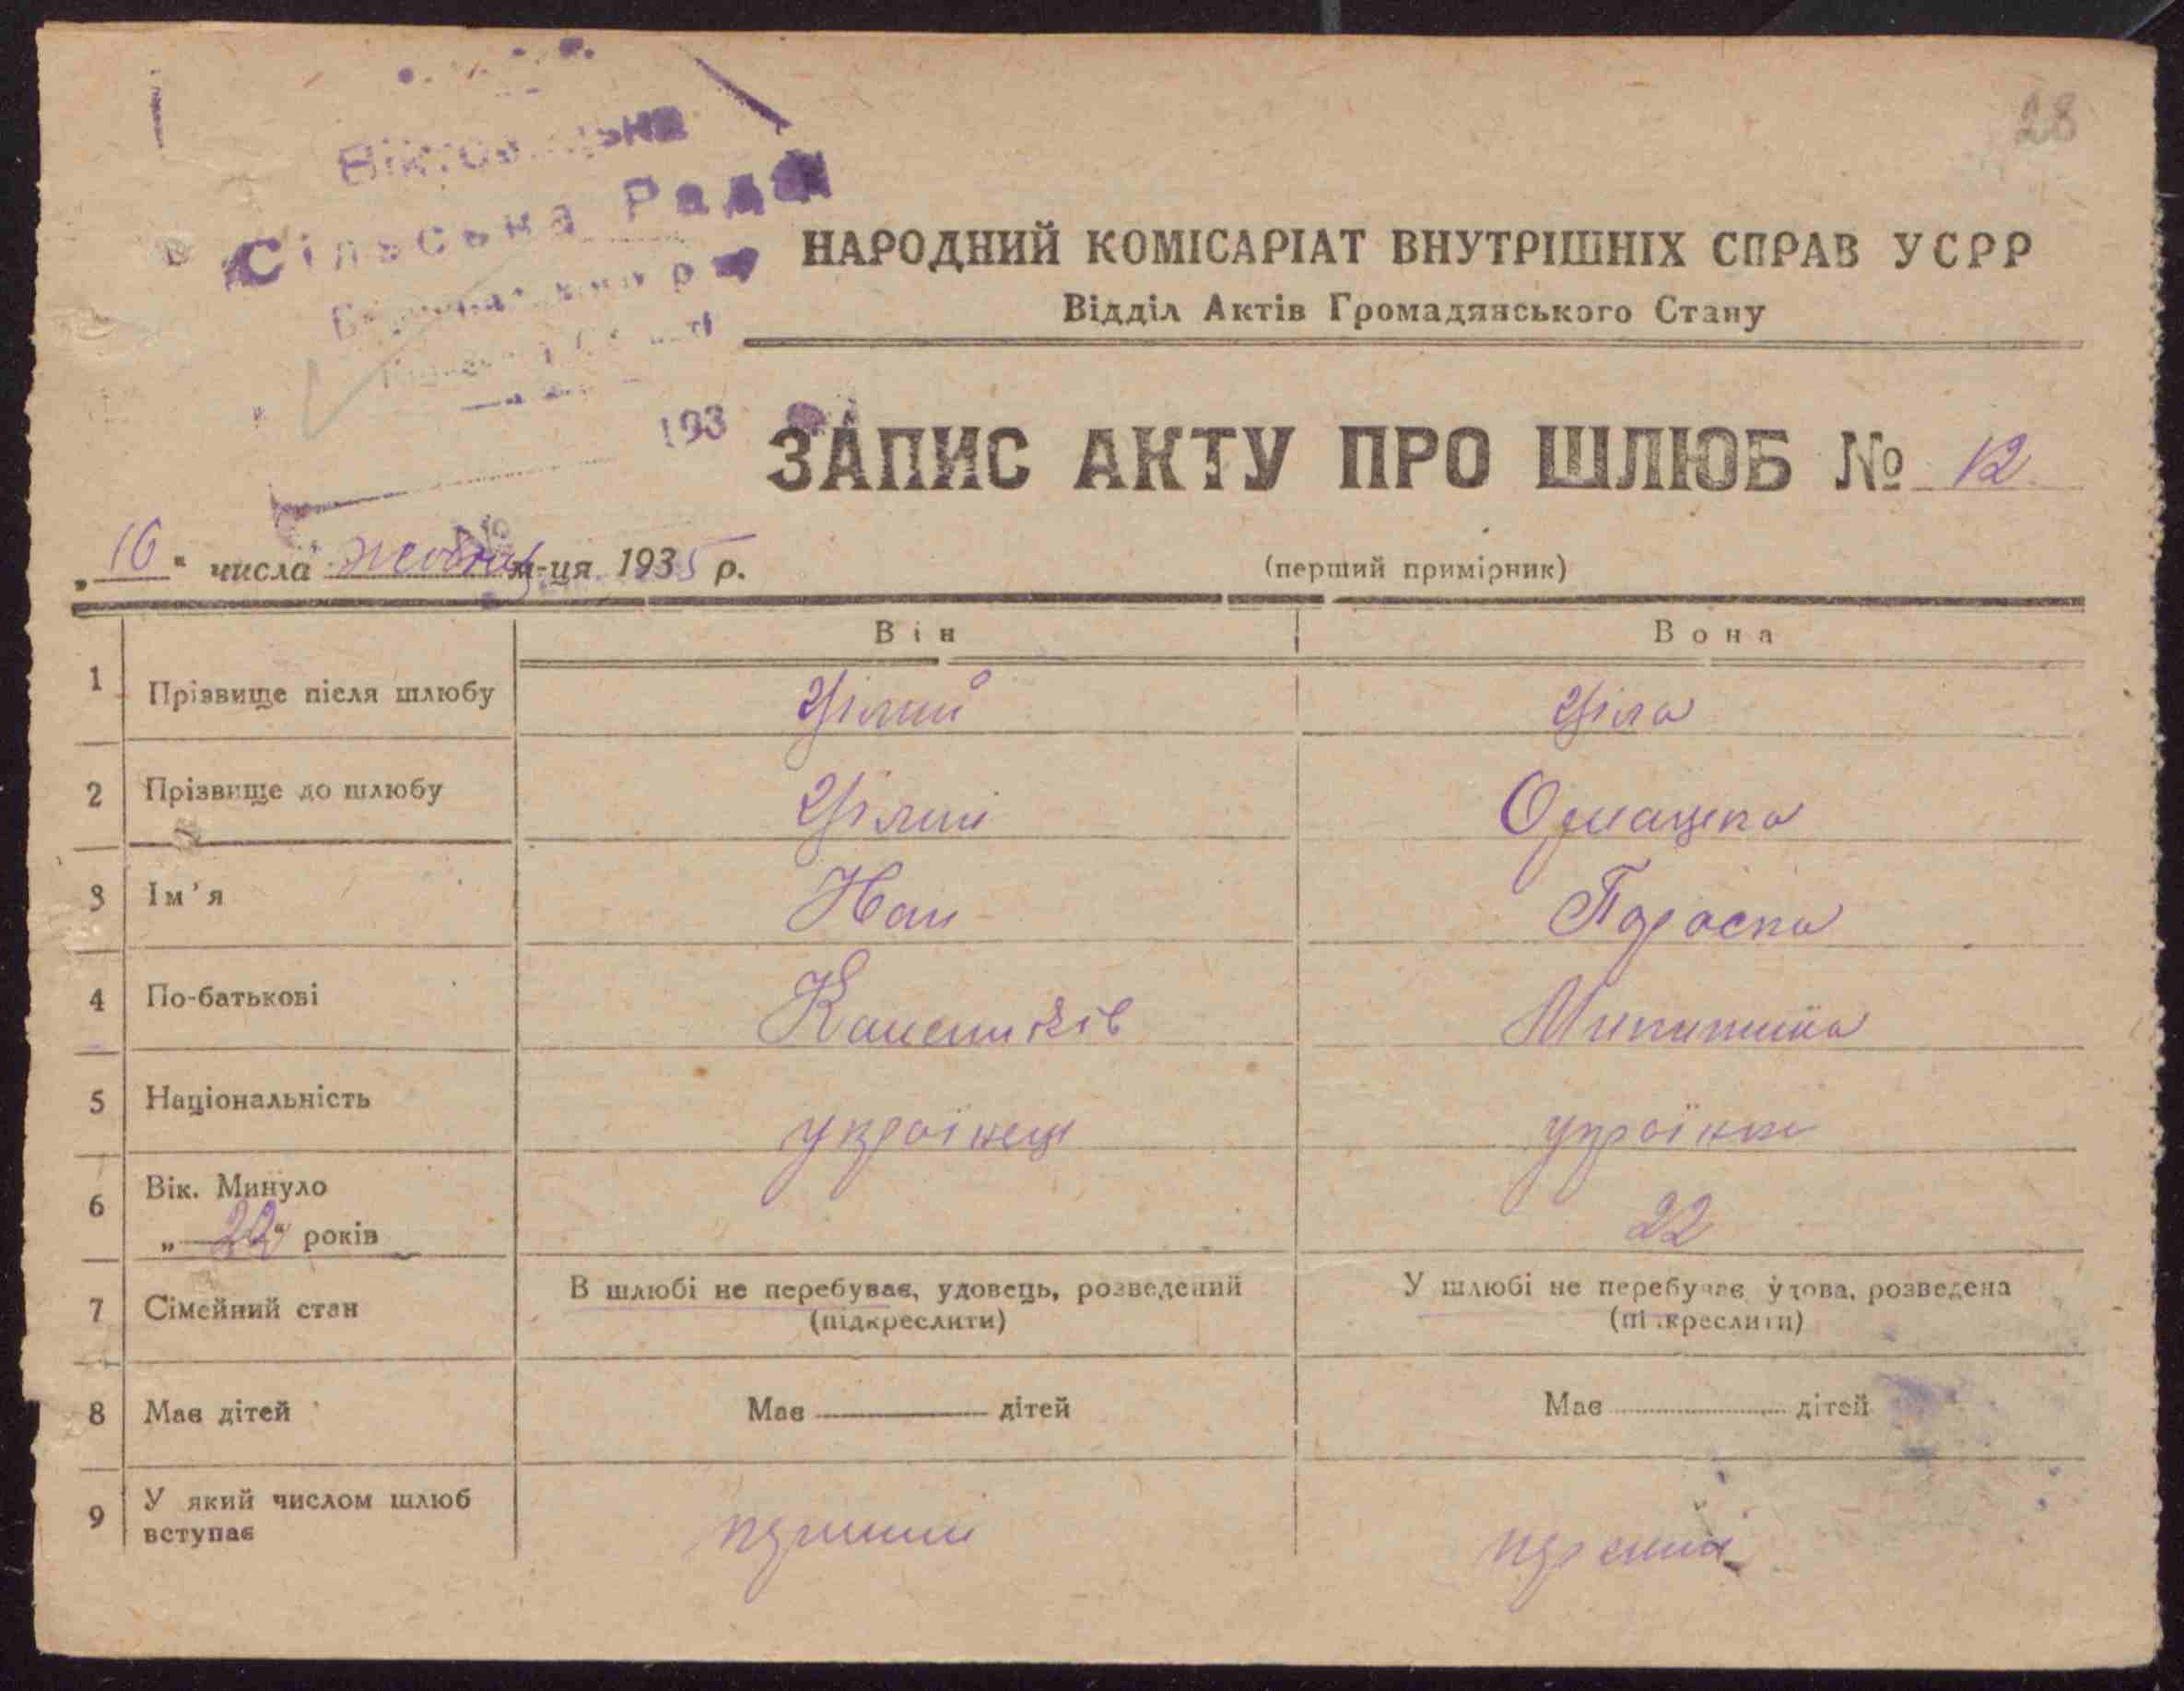 28
Сільська Рада
193
НАРОДНИЙ КОМІСАРІАТ ВНУТРІШНІХ СПРАВ УСРР
Відділ Актів Громадянського Стану
ЗАПИС АКТУ ПРО ШЛЮБ № 12
„16“ числа жовтня м-ця 1935 р.
(перший примірник)
Він Вона
1 Прізвище після шлюбу Цілий Ціла
2 Прізвище до шлюбу Цілий
3 Ім'я Іван Параска
4 По-батькові Микитина
5 Національність українець українка
6 Вік. Минуло
„22“ років 22
7 Сімейний стан В шлюбі не перебуває, удовець, розведений У шлюбі не перебуває, удова, розведена
(підкреслити) (підкреслити)
8 Має дітей Має дітей Має дітей
9 У який числом шлюб
вступає перший перший